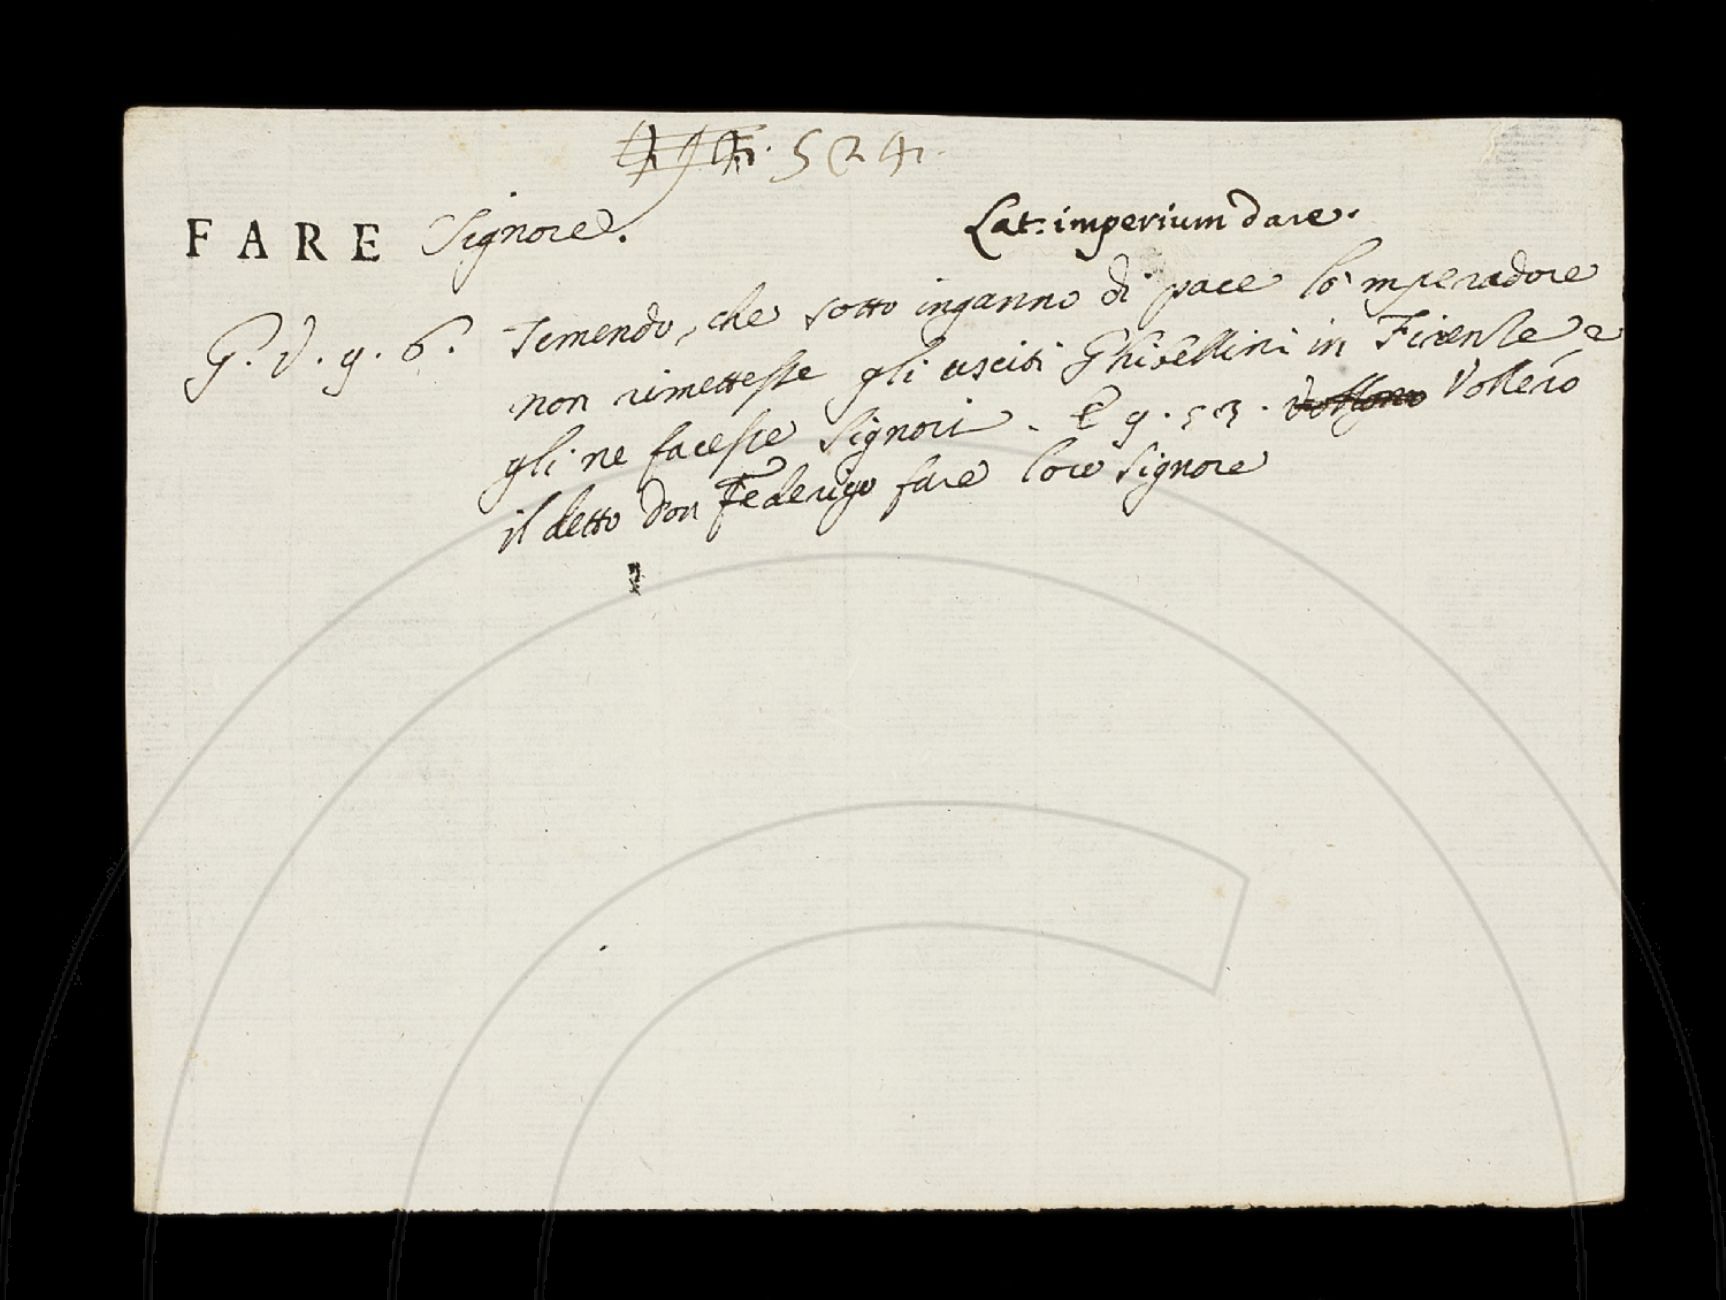 524.
FARE Signore.
Lat: imperium dare.
G. V. 9. 6. Temendo, che sotto inganno di pace lo 'mperadore
non rimettesse gli usciti Ghibellini in Firenze e
gli ne facesse Signori. E 9. 53. Vollero
il detto Don Federigo fare loro signore